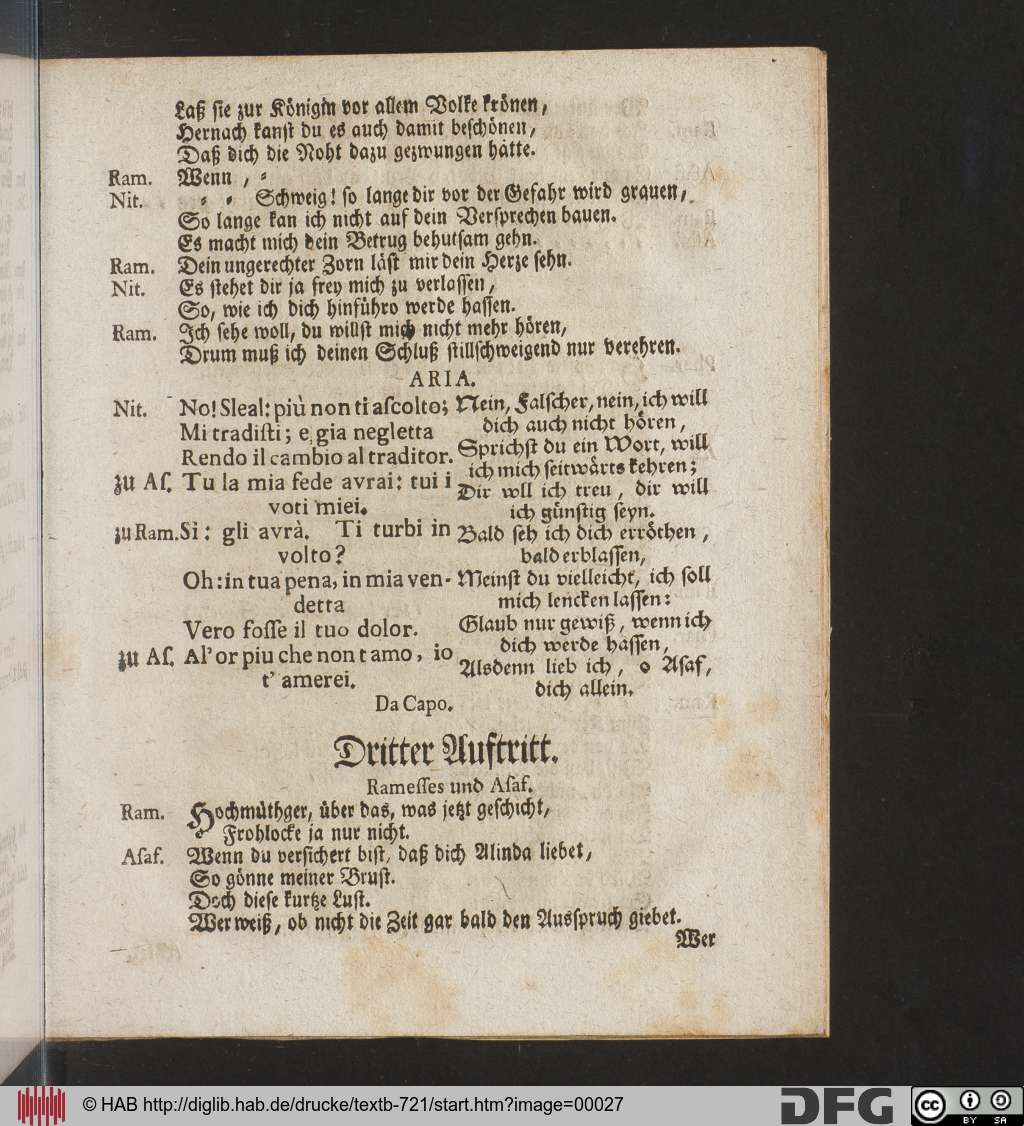 Laß sie zur Königin vor allem Volke krönen,
Hernach kanst du es auch damit beschönen,
Daß dich die Noht dazu gezwungen hätte.
Ram. Wenn , ⸗
Nit. ⸗ ⸗ Schweig! so lange dir vor der Gefahr wird grauen,
So lange kan ich nicht auf dein Versprechen bauen.
Es macht mich dein Betrug behutsam gehn.
Ram. Dein ungerechter Zorn läst mir dein Herze sehn.
Nit. Es stehet dir ja frey mich zu verlassen,
So, wie ich dich hinführo werde hassen.
Ram. Ich sehe woll, du willst mich nicht mehr hören,
Drum muß ich deinen Schluß stillschweigend nur verehren.
ARIA.
Nit. No! Sleal: più non ti aſcolto;
Mi tradiſti; e gia negletta
Rendo il cambio al traditor.
zu Aſ. Tu la mia fede avrai: tui i
voti miei.
zu Ram. Sì: gli avrà. Ti turbi in
volto?
Oh: in tua pena, in mia ven-
detta
Vero foſſe il tuo dolor.
zu Aſ. Al' or piu che non t amo, io
t' amerei.
Nein, Falscher, nein, ich will
dich auch nicht hören,
Sprichst du ein Wort, will
ich mich seitwärts kehren;
Dir wll ich treu, dir will
ich günstig seyn.
Bald seh ich dich erröthen,
bald erblassen,
Meinst du vielleicht, ich soll
mich lencken lassen:
Glaub nur gewiß, wenn ich
dich werde hassen,
Alsdenn lieb ich, o Asaf,
dich allein.
Da Capo.
Dritter Auftritt.
Rameſſes und Aſaf.
Ram. Hochmüthger, über das, was jetzt geschicht,
Frohlocke ja nur nicht.
Aſaf. Wenn du versichert bist, daß dich Alinda liebet,
So gönne meiner Brust.
Doch diese kurtze Lust.
Wer weiß, ob nicht die Zeit gar bald den Ausspruch giebet.
Wer
© HAB http://diglib.hab.de/drucke/textb-721/start.htm?image=00027
DFG
cc BY SA